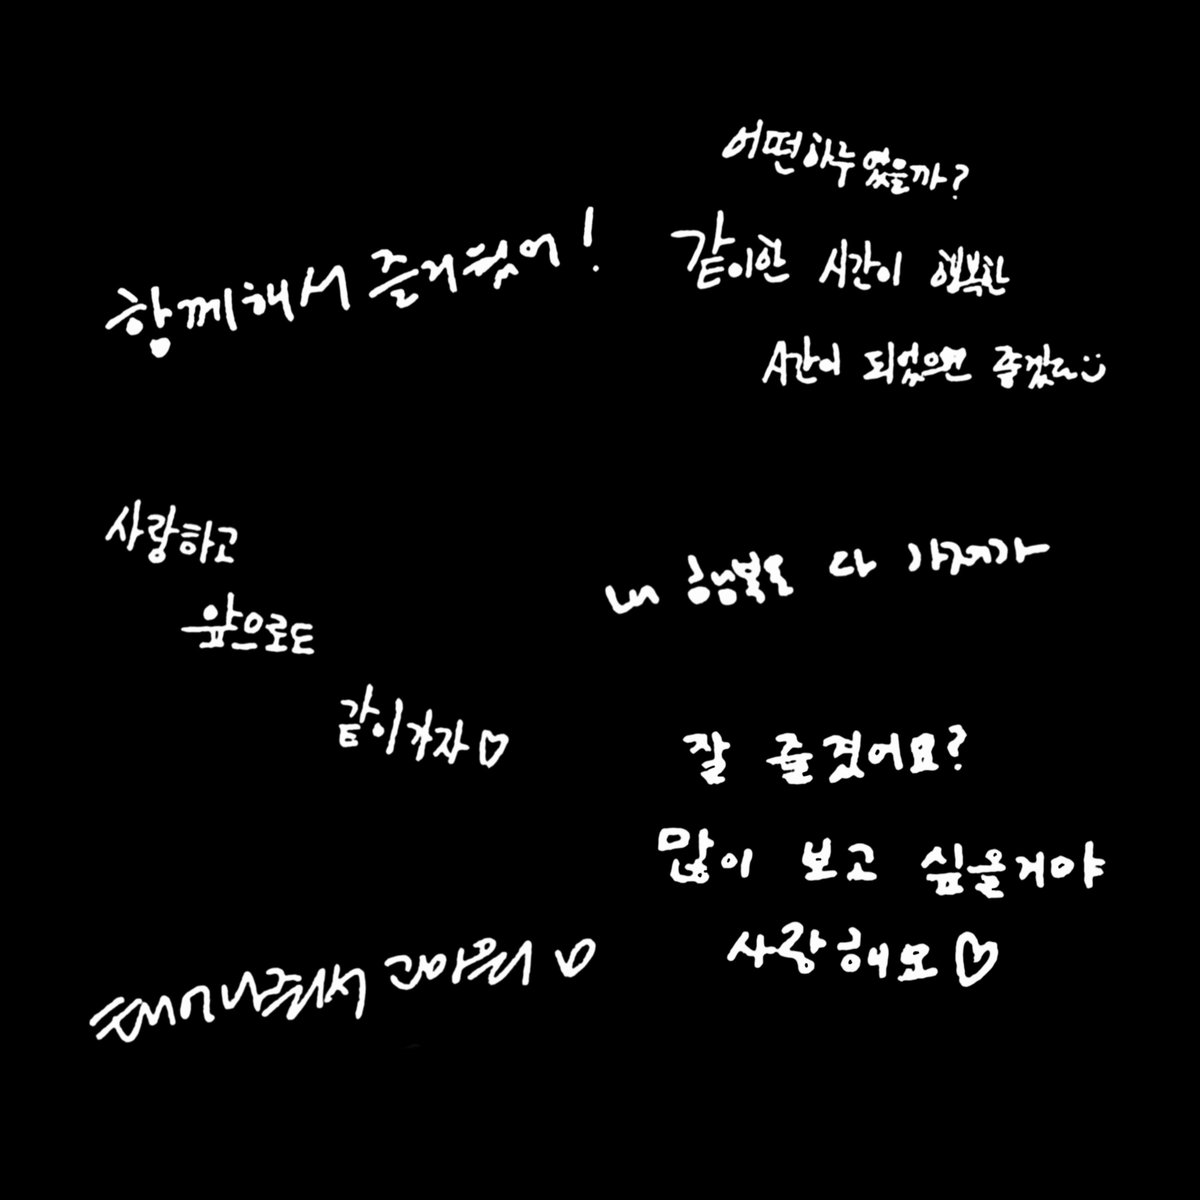 함께해서 즐거웠어!
어떤하루였을까?
같이한 시간이 행복한
시간이 되었으면 좋겠다
사랑하고
앞으로도
같이가자♡
내 행복을 다 가져가
잘 즐겼어요?
많이 보고 싶을거야
사랑해요♡
태어나줘서 고마워♡